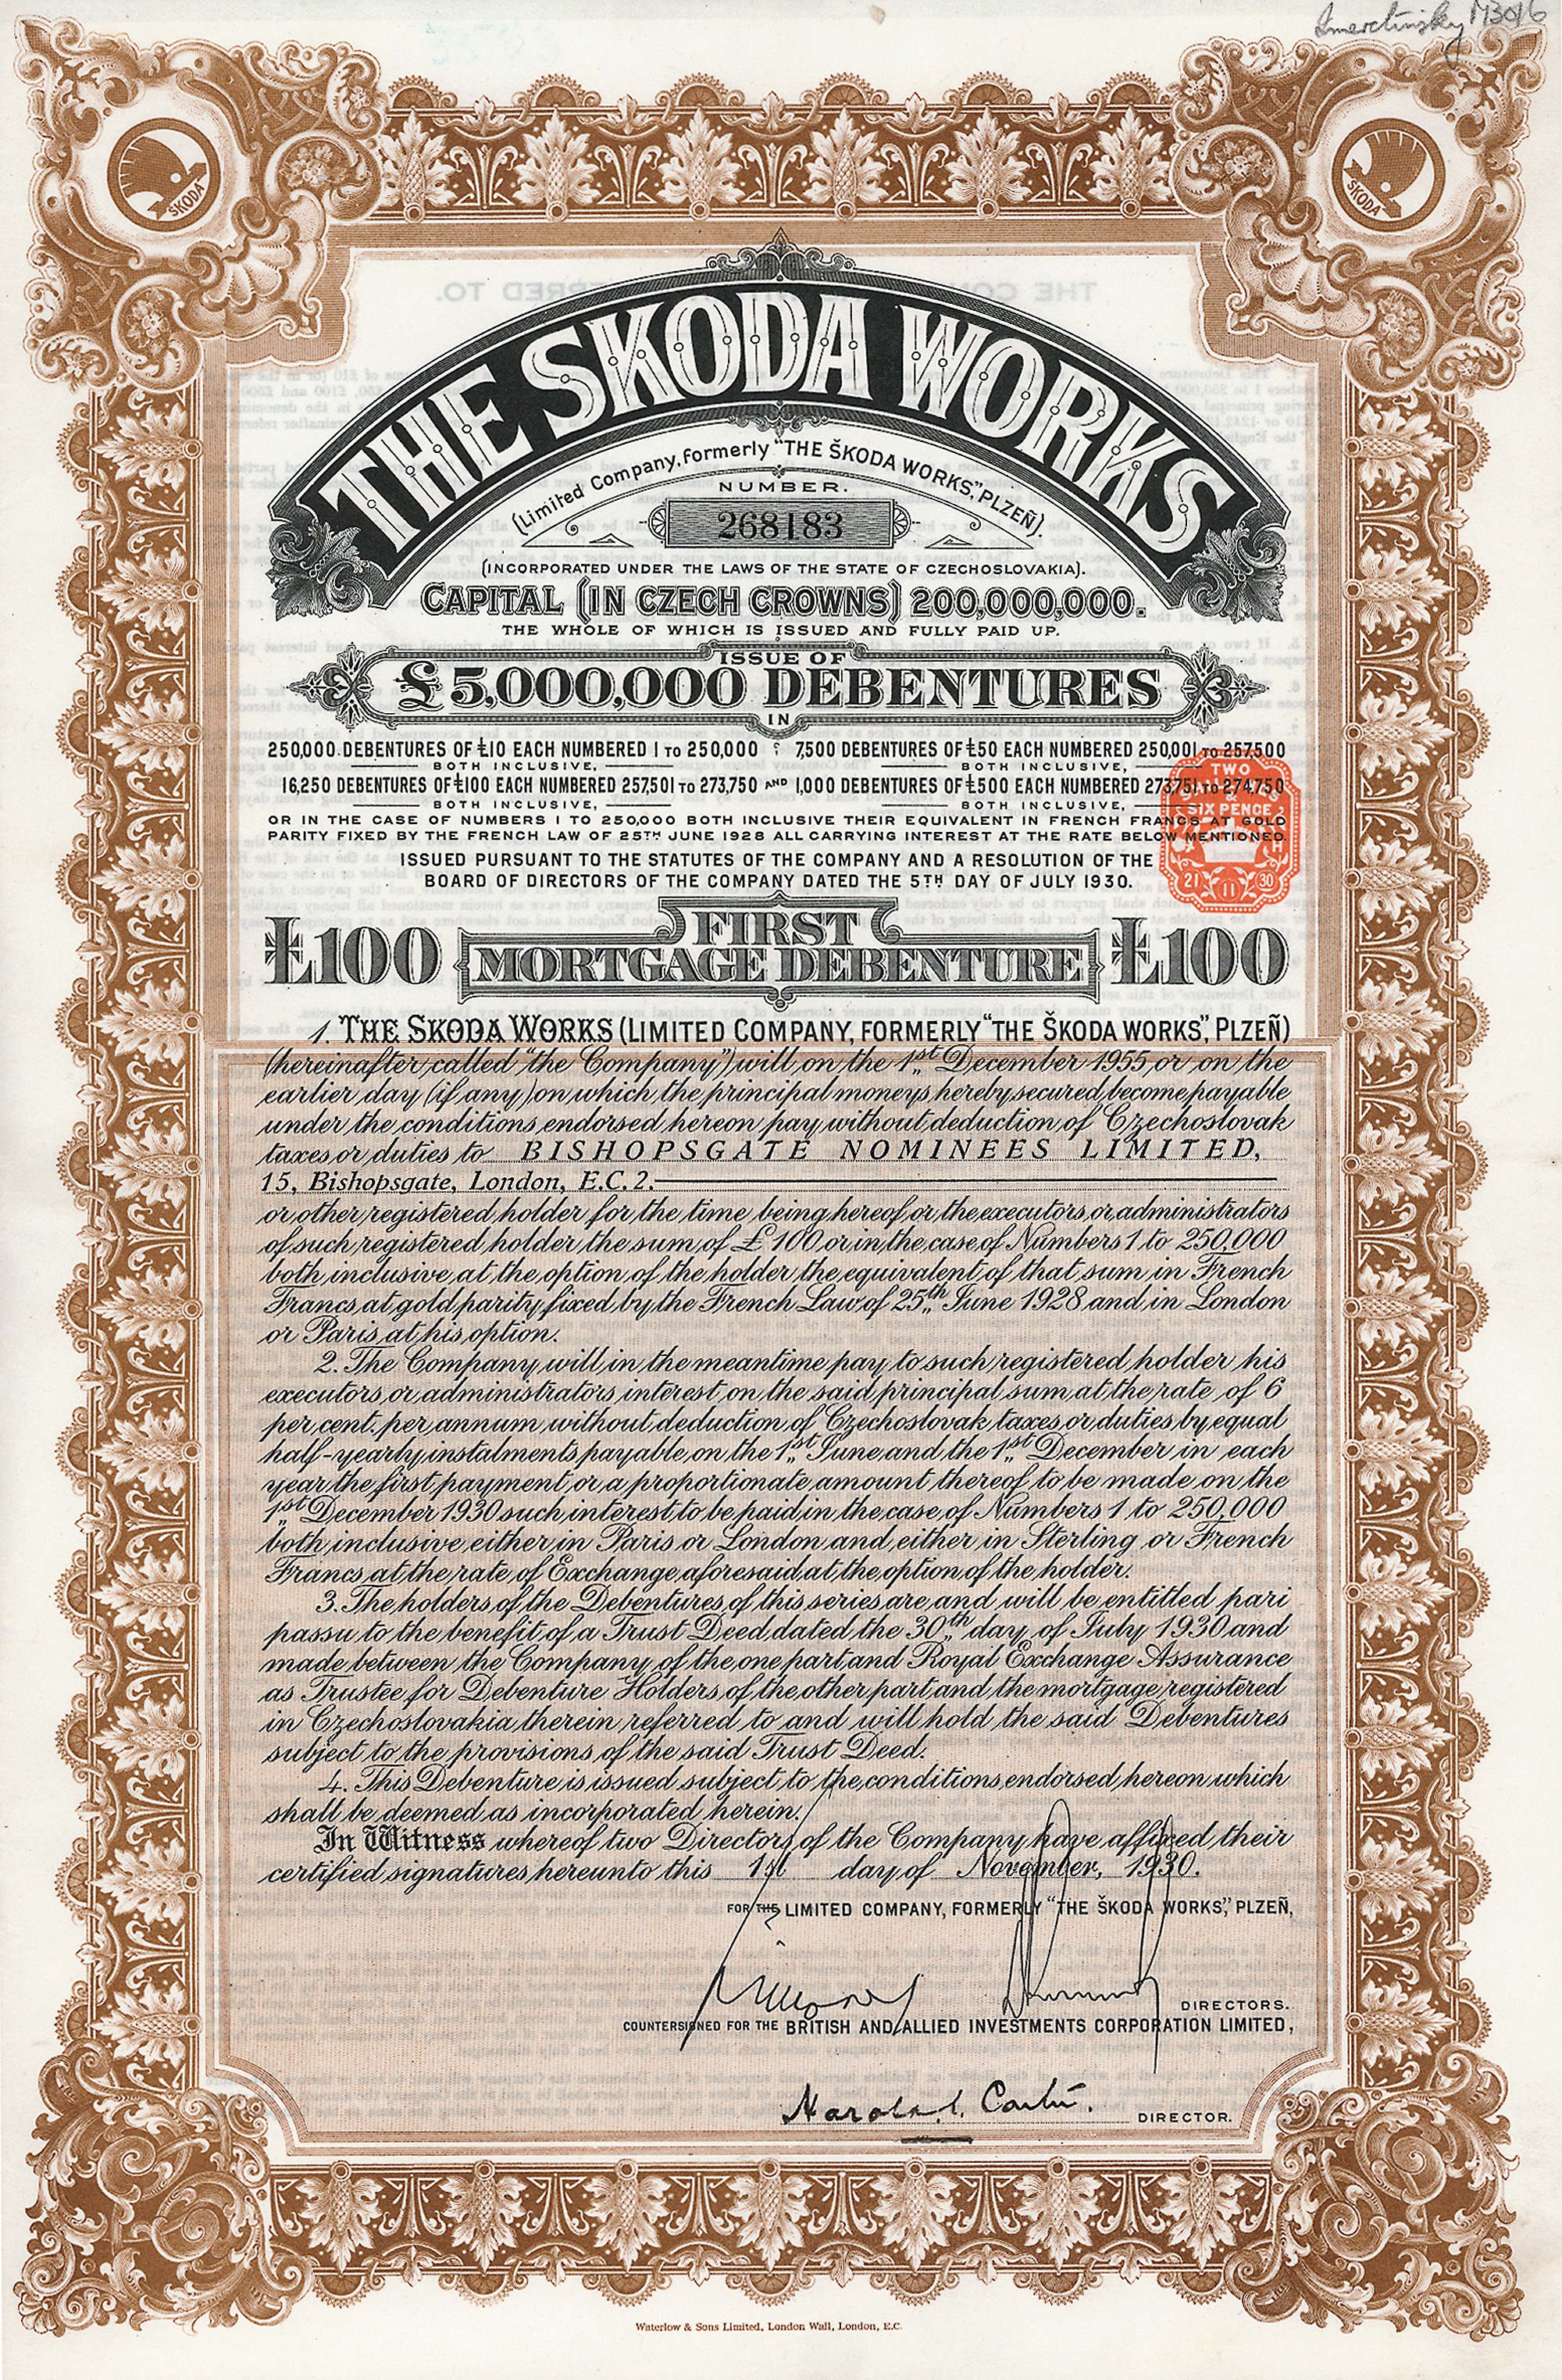 Imeretinsky M3016
SKODA
SKODA
THE SKODA WORKS
(Limited Company, formerly "THE ŠKODA WORKS," PLZEÑ).
NUMBER.
268183
(INCORPORATED UNDER THE LAWS OF THE STATE OF CZECHOSLOVAKIA).
CAPITAL (IN CZECH CROWNS) 200,000,000.
THE WHOLE OF WHICH IS ISSUED AND FULLY PAID UP.
ISSUE OF
£5,000,000 DEBENTURES
IN
250,000 DEBENTURES OF £10 EACH NUMBERED 1 TO 250,000 : 7,500 DEBENTURES OF £50 EACH NUMBERED 250,001 TO 257,500
BOTH INCLUSIVE, BOTH INCLUSIVE,
16,250 DEBENTURES OF £100 EACH NUMBERED 257,501 TO 273,750 AND 1,000 DEBENTURES OF £500 EACH NUMBERED 273,751 TO 274,750
BOTH INCLUSIVE, BOTH INCLUSIVE,
OR IN THE CASE OF NUMBERS 1 TO 250,000 BOTH INCLUSIVE THEIR EQUIVALENT IN FRENCH FRANCS AT GOLD
PARITY FIXED BY THE FRENCH LAW OF 25TH JUNE 1928 ALL CARRYING INTEREST AT THE RATE BELOW MENTIONED
ISSUED PURSUANT TO THE STATUTES OF THE COMPANY AND A RESOLUTION OF THE
BOARD OF DIRECTORS OF THE COMPANY DATED THE 5TH DAY OF JULY 1930.
TWO
SHILLINGS
&
SIX PENCE
21 11 30
£100 FIRST MORTGAGE DEBENTURE £100
1. THE SKODA WORKS (LIMITED COMPANY, FORMERLY "THE ŠKODA WORKS", PLZEÑ)
(hereinafter called "the Company") will on the 1st December 1955 or on the
earlier day (if any) on which the principal moneys hereby secured become payable
under the conditions endorsed hereon pay without deduction of Czechoslovak
taxes or duties to BISHOPSGATE NOMINEES LIMITED,
15, Bishopsgate, London, E.C.2.
or other registered holder for the time being hereof or the executors or administrators
of such registered holder the sum of £100 or in the case of Numbers 1 to 250,000
both inclusive at the option of the holder the equivalent of that sum in French
Francs at gold parity fixed by the French Law of 25th June 1928 and in London
or Paris at his option.
2. The Company will in the meantime pay to such registered holder his
executors or administrators interest on the said principal sum at the rate of 6
per cent. per annum without deduction of Czechoslovak taxes or duties by equal
half-yearly instalments payable on the 1st June and the 1st December in each
year the first payment or a proportionate amount thereof to be made on the
1st December 1930 such interest to be paid in the case of Numbers 1 to 250,000
both inclusive either in Paris or London and either in Sterling or French
Francs at the rate of Exchange aforesaid at the option of the holder.
3. The holders of the Debentures of this series are and will be entitled pari
passu to the benefit of a Trust Deed dated the 30th day of July 1930 and
made between the Company of the one part and Royal Exchange Assurance
as Trustee for Debenture Holders of the other part and the mortgage registered
in Czechoslovakia therein referred to and will hold the said Debentures
subject to the provisions of the said Trust Deed.
4. This Debenture is issued subject to the conditions endorsed hereon which
shall be deemed as incorporated herein.
In Witness whereof two Directors of the Company have affixed their
certified signatures hereunto this 1st day of November, 1930.
FOR THE LIMITED COMPANY, FORMERLY "THE ŠKODA WORKS," PLZEÑ,
DIRECTORS.
COUNTERSIGNED FOR THE BRITISH AND ALLIED INVESTMENTS CORPORATION LIMITED,
DIRECTOR.
Waterlow & Sons Limited, London Wall, London, E.C.